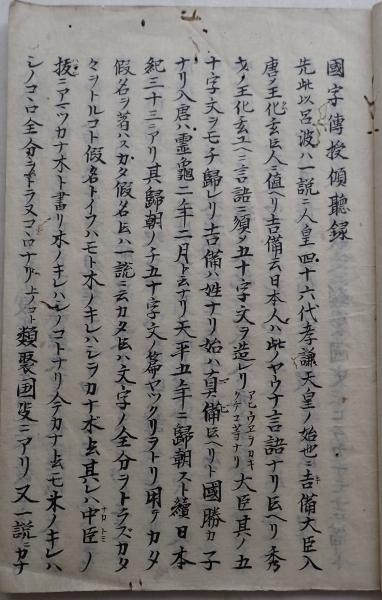 國字傳授傾聽錄
先此以呂波ハ一説ニ人皇四十六代孝謙天皇ノ始也ニ吉備大臣入
唐メ王化玄ト云人ニ値ヘリ吉備云日本人ハ此ノヤウナ言語ナリト云ヘリ秀
才ノ王化玄ユヘニ言語ニ須メ五十字文ヲ造レリ アイウヱヲカキクケコ等ナリ 大臣其ノ五
十字文ヲモチ歸レリ吉備ハ姓ナリ始ハ真備ト云ヘリト國勝カ子
ナリ入唐ハ霊龜二年二月ト云ナリ天平五年ニ歸朝スト續日本
紀三十三ニアリ其歸朝ノチ五十字文篇ヤツクリヲトリ用テカタ
假名ヲ著ハスカタ假名ト云ハ一説ニ云カタト云ハ文字ノ全分ヲトラズカタ
々ヲトルコト假名トイフハモト木ノキレハシヲカナ木ト云其レハ中臣ノ
抜ニアマツカナ木ト書リ木ノキレハシノコトナリ今テカナト云モ木ノキレハ
シノコヽロ全分ヲトラヌコヽロナリ 上ノコト 類聚國史ニアリ又一説ニカナ